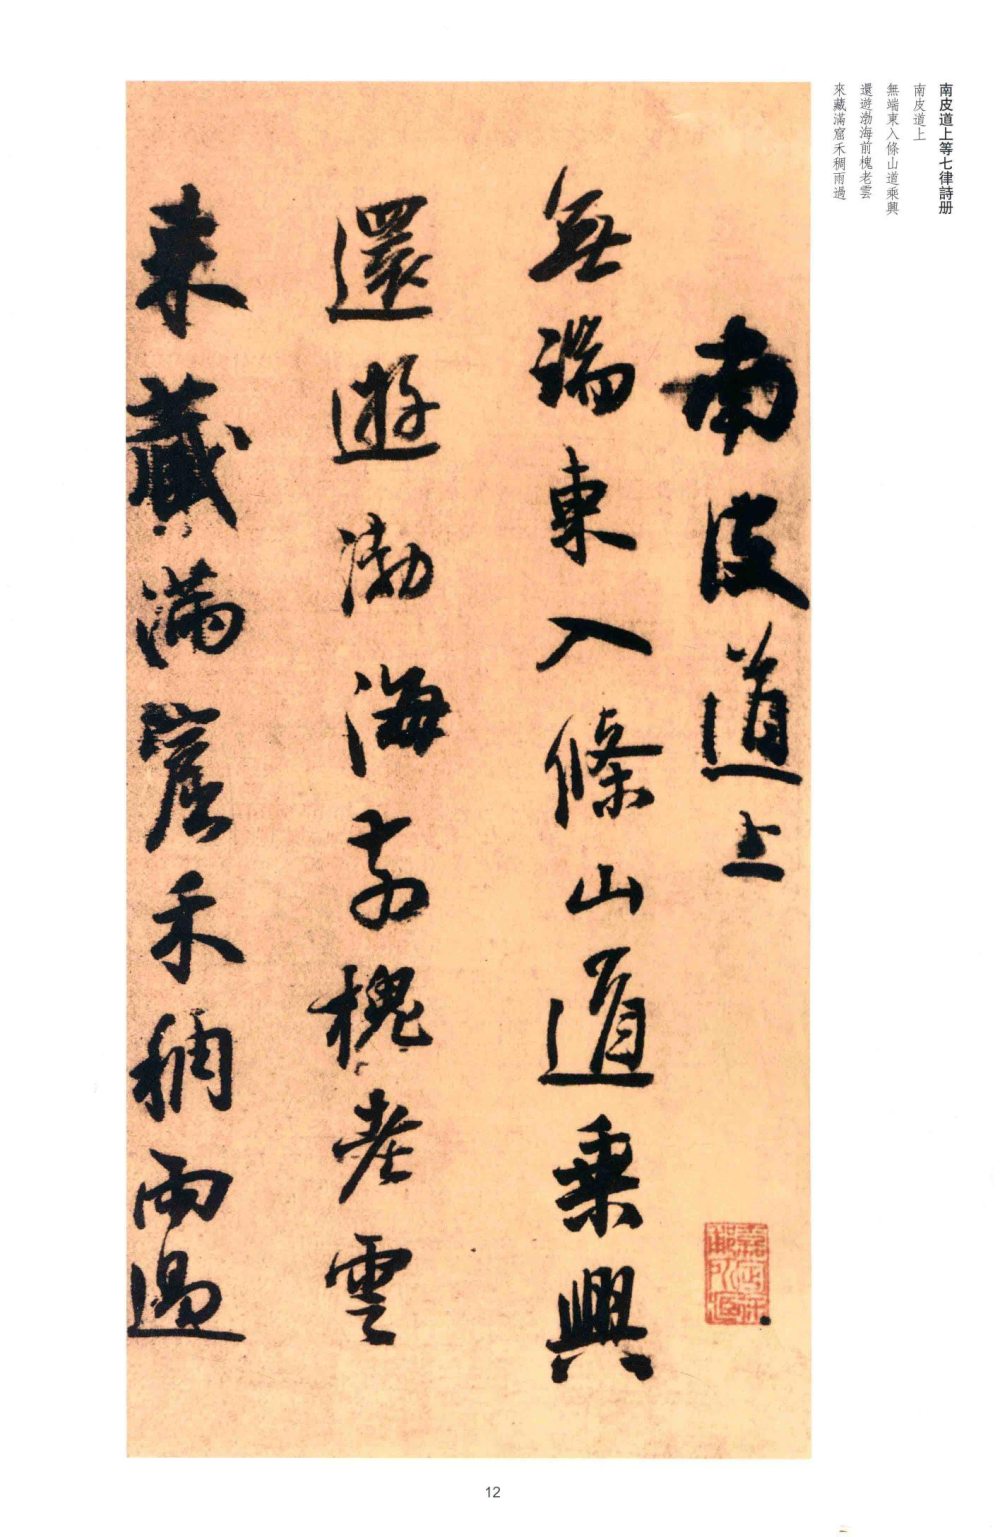 南皮道上等七律詩册
南皮道上
無端東入條山道乘興
還遊渤海前槐老雲
來藏滿窟禾稠雨過
南皮道上
無端東入條山道乘興
還遊渤海前槐老雲
來藏滿窟禾稠雨過
12